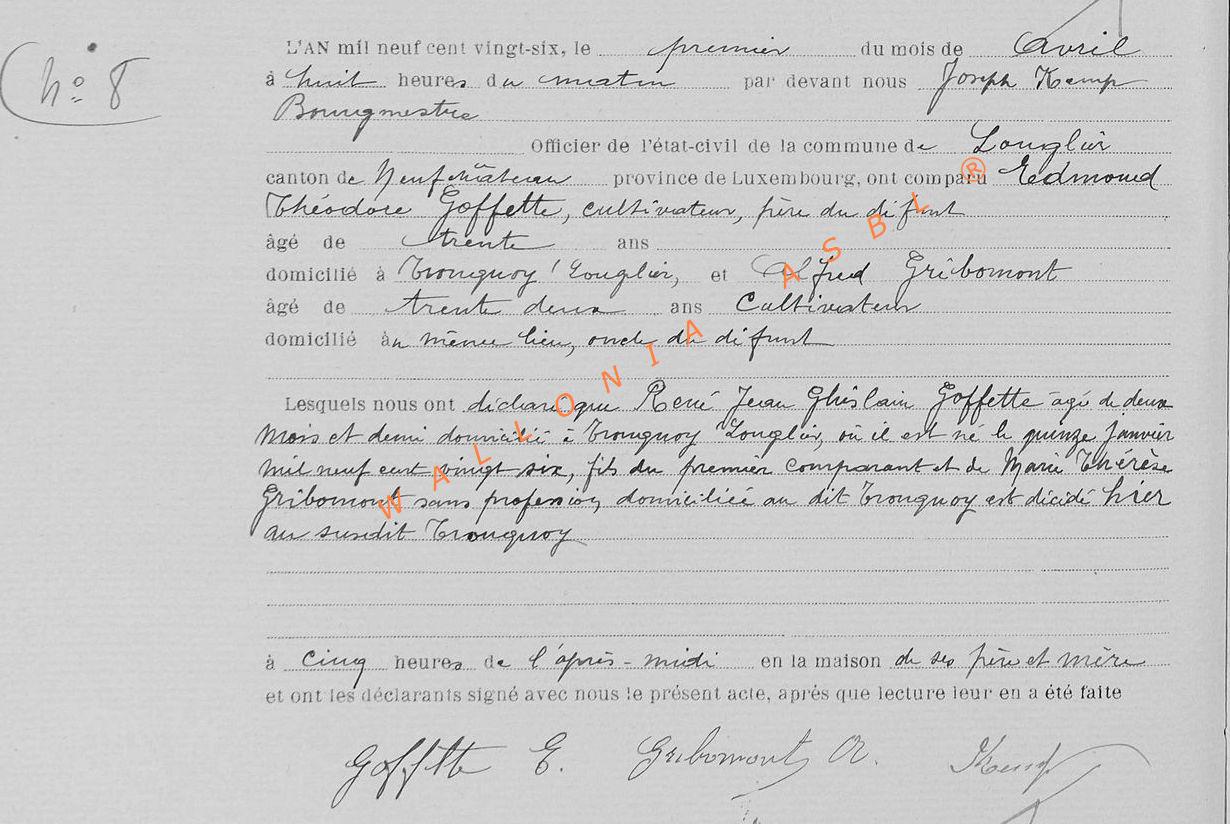 N° 8
L'AN mil neuf cent vingt-six, le premier du mois de Avril
à huit heures du matin par devant nous Joseph Kemp
Bourgmestre
Officier de l'état-civil de la commune de Longlier
canton de Neufchâteau province de Luxembourg, ont comparu Edmond
Théodore Goffette, cultivateur, père du défunt
âgé de trente ans
domicilié à Tronquoy Longlier, et Alfred Gribomont
âgé de trente deux ans Cultivateur
domicilié au même lieu, oncle du défunt
Lesquels nous ont déclaré que René Jean Ghislain Goffette agé de deux
mois et demi domicilié à Tronquoy Longlier, où il est né le quinze Janvier
mil neuf cent vingt six, fils du premier comparant et de Marie Thérèse
Gribomont sans profession, domiciliée au dit Tronquoy est décédé hier
au susdit Tronquoy
à cinq heures de l'après-midi en la maison de ses père et mère
et ont les déclarants signé avec nous le présent acte, après que lecture leur en a été faite
Goffette E. Gribomont A. Kemp
WALLONIA ASBL ®